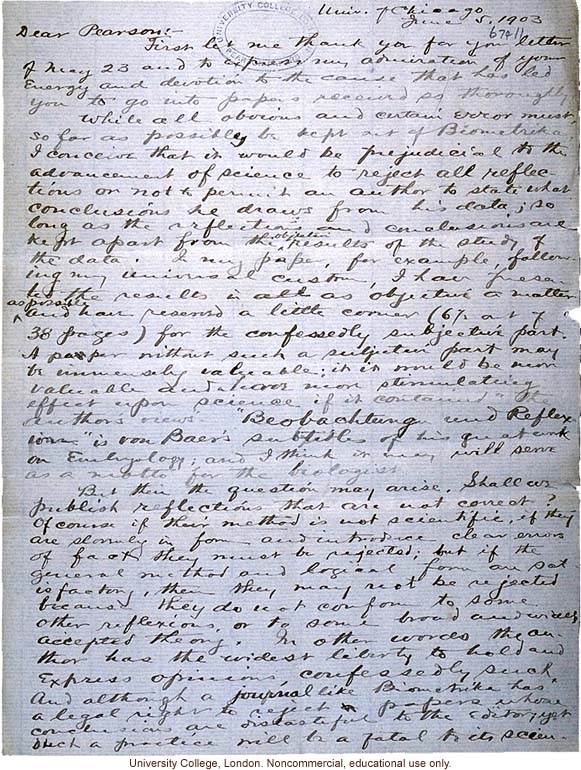 UNIVERSITY COLLEGE
Univ. of Chicago
June 5, 1903
Dear Pearson:-
First let me thank you for your letter
of May 23 and to express my admiration of your
energy and devotion to the cause that has led
you to go into papers received so thoroughly
While all obvious and certain error must
so far as possibly be kept out of Biometrika
I conceive that it would be prejudicial to the
advancement of science to reject all reflec-
tions or not to permit an author to state what
conclusions he draws from his data; so
long as the reflections and conclusions are
kept apart from the objective results of the study of
the data. In my paper, for example, follow-
ing my universal custom, I have presen-
ted the results in all as objective a matter
as possible and have reserved a little corner (6 1/2 out of
38 pages) for the confessedly subjective part.
A paper without such a subjective part may
be immensely valuable; it would be more
valuable and have more stimulating
effect upon science if it contained "the
author's views". "Beobachtung und Reflex-
ion" is von Baer's subtitle of his great work
on Embryology; and I think it may well serve
as a motto for the biologist.
But then the question may arise, Shall we
publish reflections that are not correct?
Of course if their method is not scientific, if they
are slovenly in form and introduce clear errors
of fact they must be rejected; but if the
general method and logical form are sat-
isfactory, then they may not be rejected
because they do not conform to some
other reflexions, or to some broad and widely
accepted theory. In other words the au-
thor has the widest liberty to hold and
express opinions, confessedly such.
And although a journal like Biometrika has
a legal right to reject papers whose
conclusions are distasteful to the Editor, yet
such a practice will be a fatal to its scien-
University College, London. Noncommercial, educational use only.